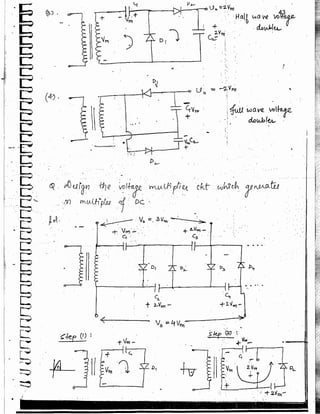 (3).
C1
D2
U₀ = 2Vm
43
Half wave voltage
doubler
Vm
Vm
D1
C2
2Vm
(4).
D1
U₀ = -2Vm
C1
Vm
full wave voltage
doubler
Vm
C2
D2
Q. Design the voltage multiplier ckt which generates
n multiples of DC
Sol.
V₀ = 3Vm
+ Vm -
C1
+ 2Vm -
C3
D1
D2
D3
D4
C2
+ 2Vm -
C4
+ 2Vm -
V₀ = 4Vm
Step (1) :
+ Vm -
C1
Vm
D1
Step (2) :
+ Vm -
C1
Vm
2Vm
D2
+ 2Vm -